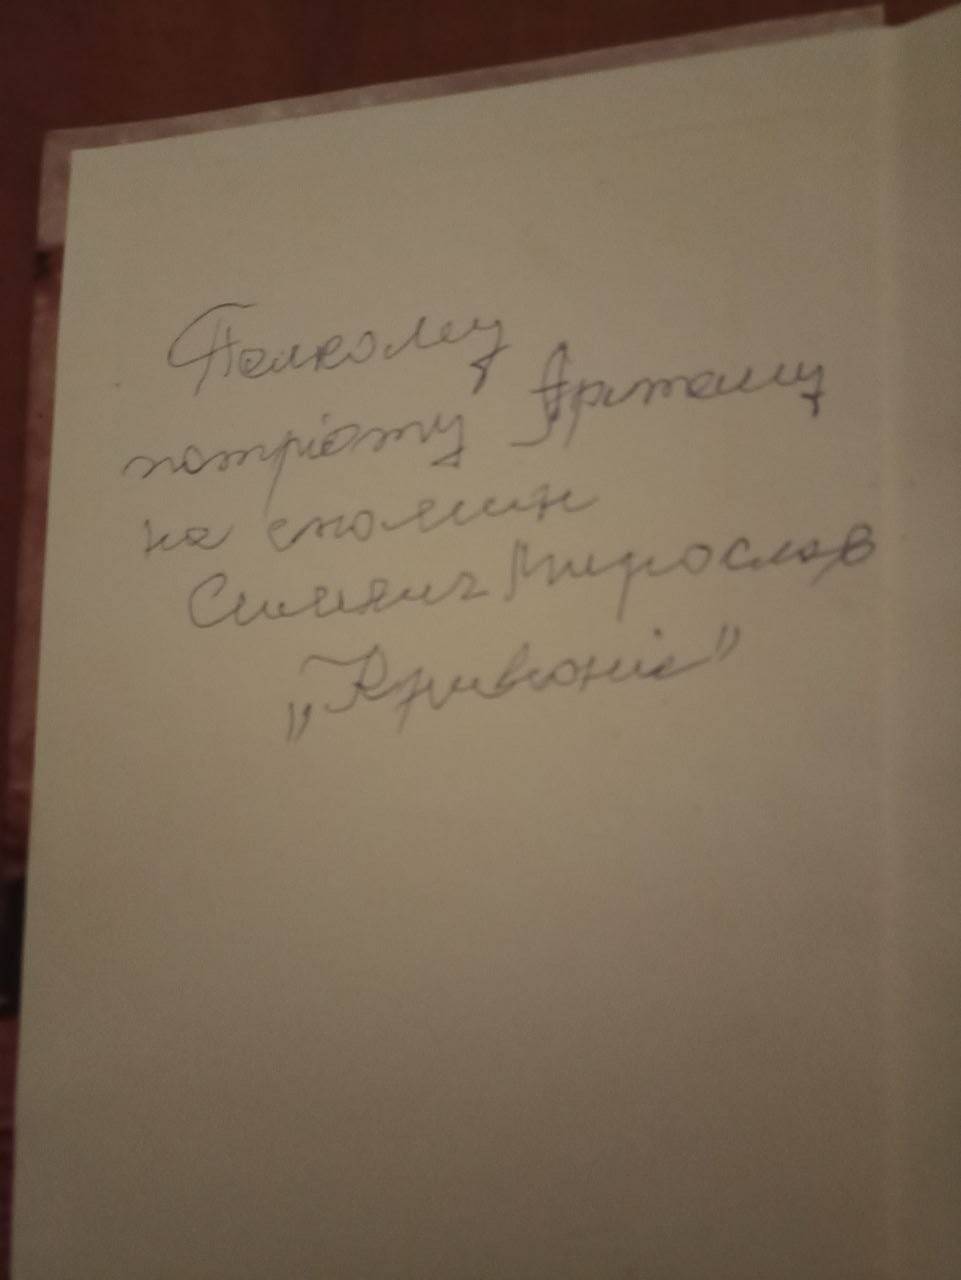 Палкому
патріоту Артему
на спомин
Симчич Мирослав
„Кривоніс"